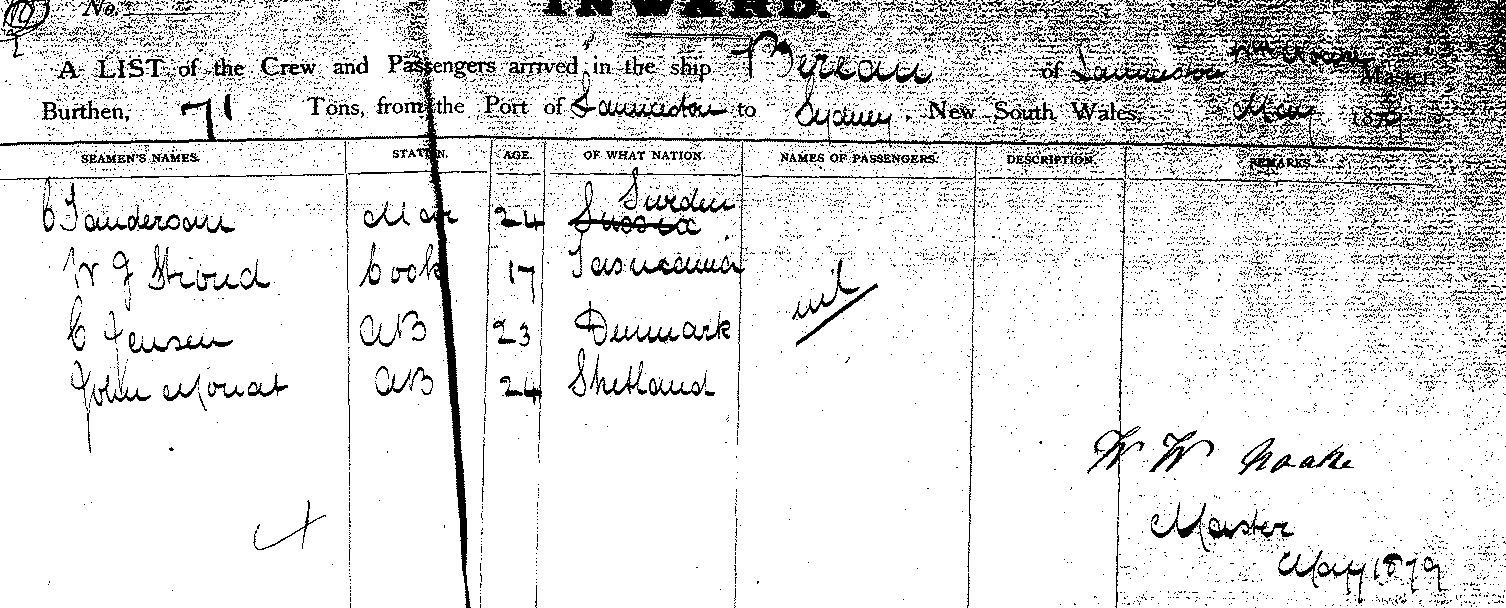 No.
INWARD.
A LIST of the Crew and Passengers arrived in the ship Bereau of Launceston Master
Burthen, 71 Tons, from the Port of Launceston to Sydney, New South Wales. May 187
SEAMEN'S NAMES. STATION. AGE. OF WHAT NATION. NAMES OF PASSENGERS. DESCRIPTION. REMARKS.
Sweden
C Sanderson Mate 24 Russia
W J Stroud Cook 17 Tasmania
nil
C Jensen AB 23 Denmark
John Mouat AB 24 Shetland
W W Noake
Master
May 1879